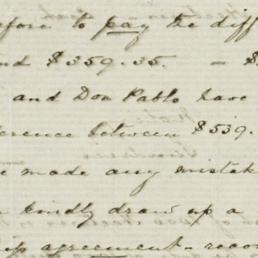 efore to pay the diff
nd $359.35. — $
and Don Pablo have
ference between $539.
e made any mistak
kindly draw up a
ip agreement - recor